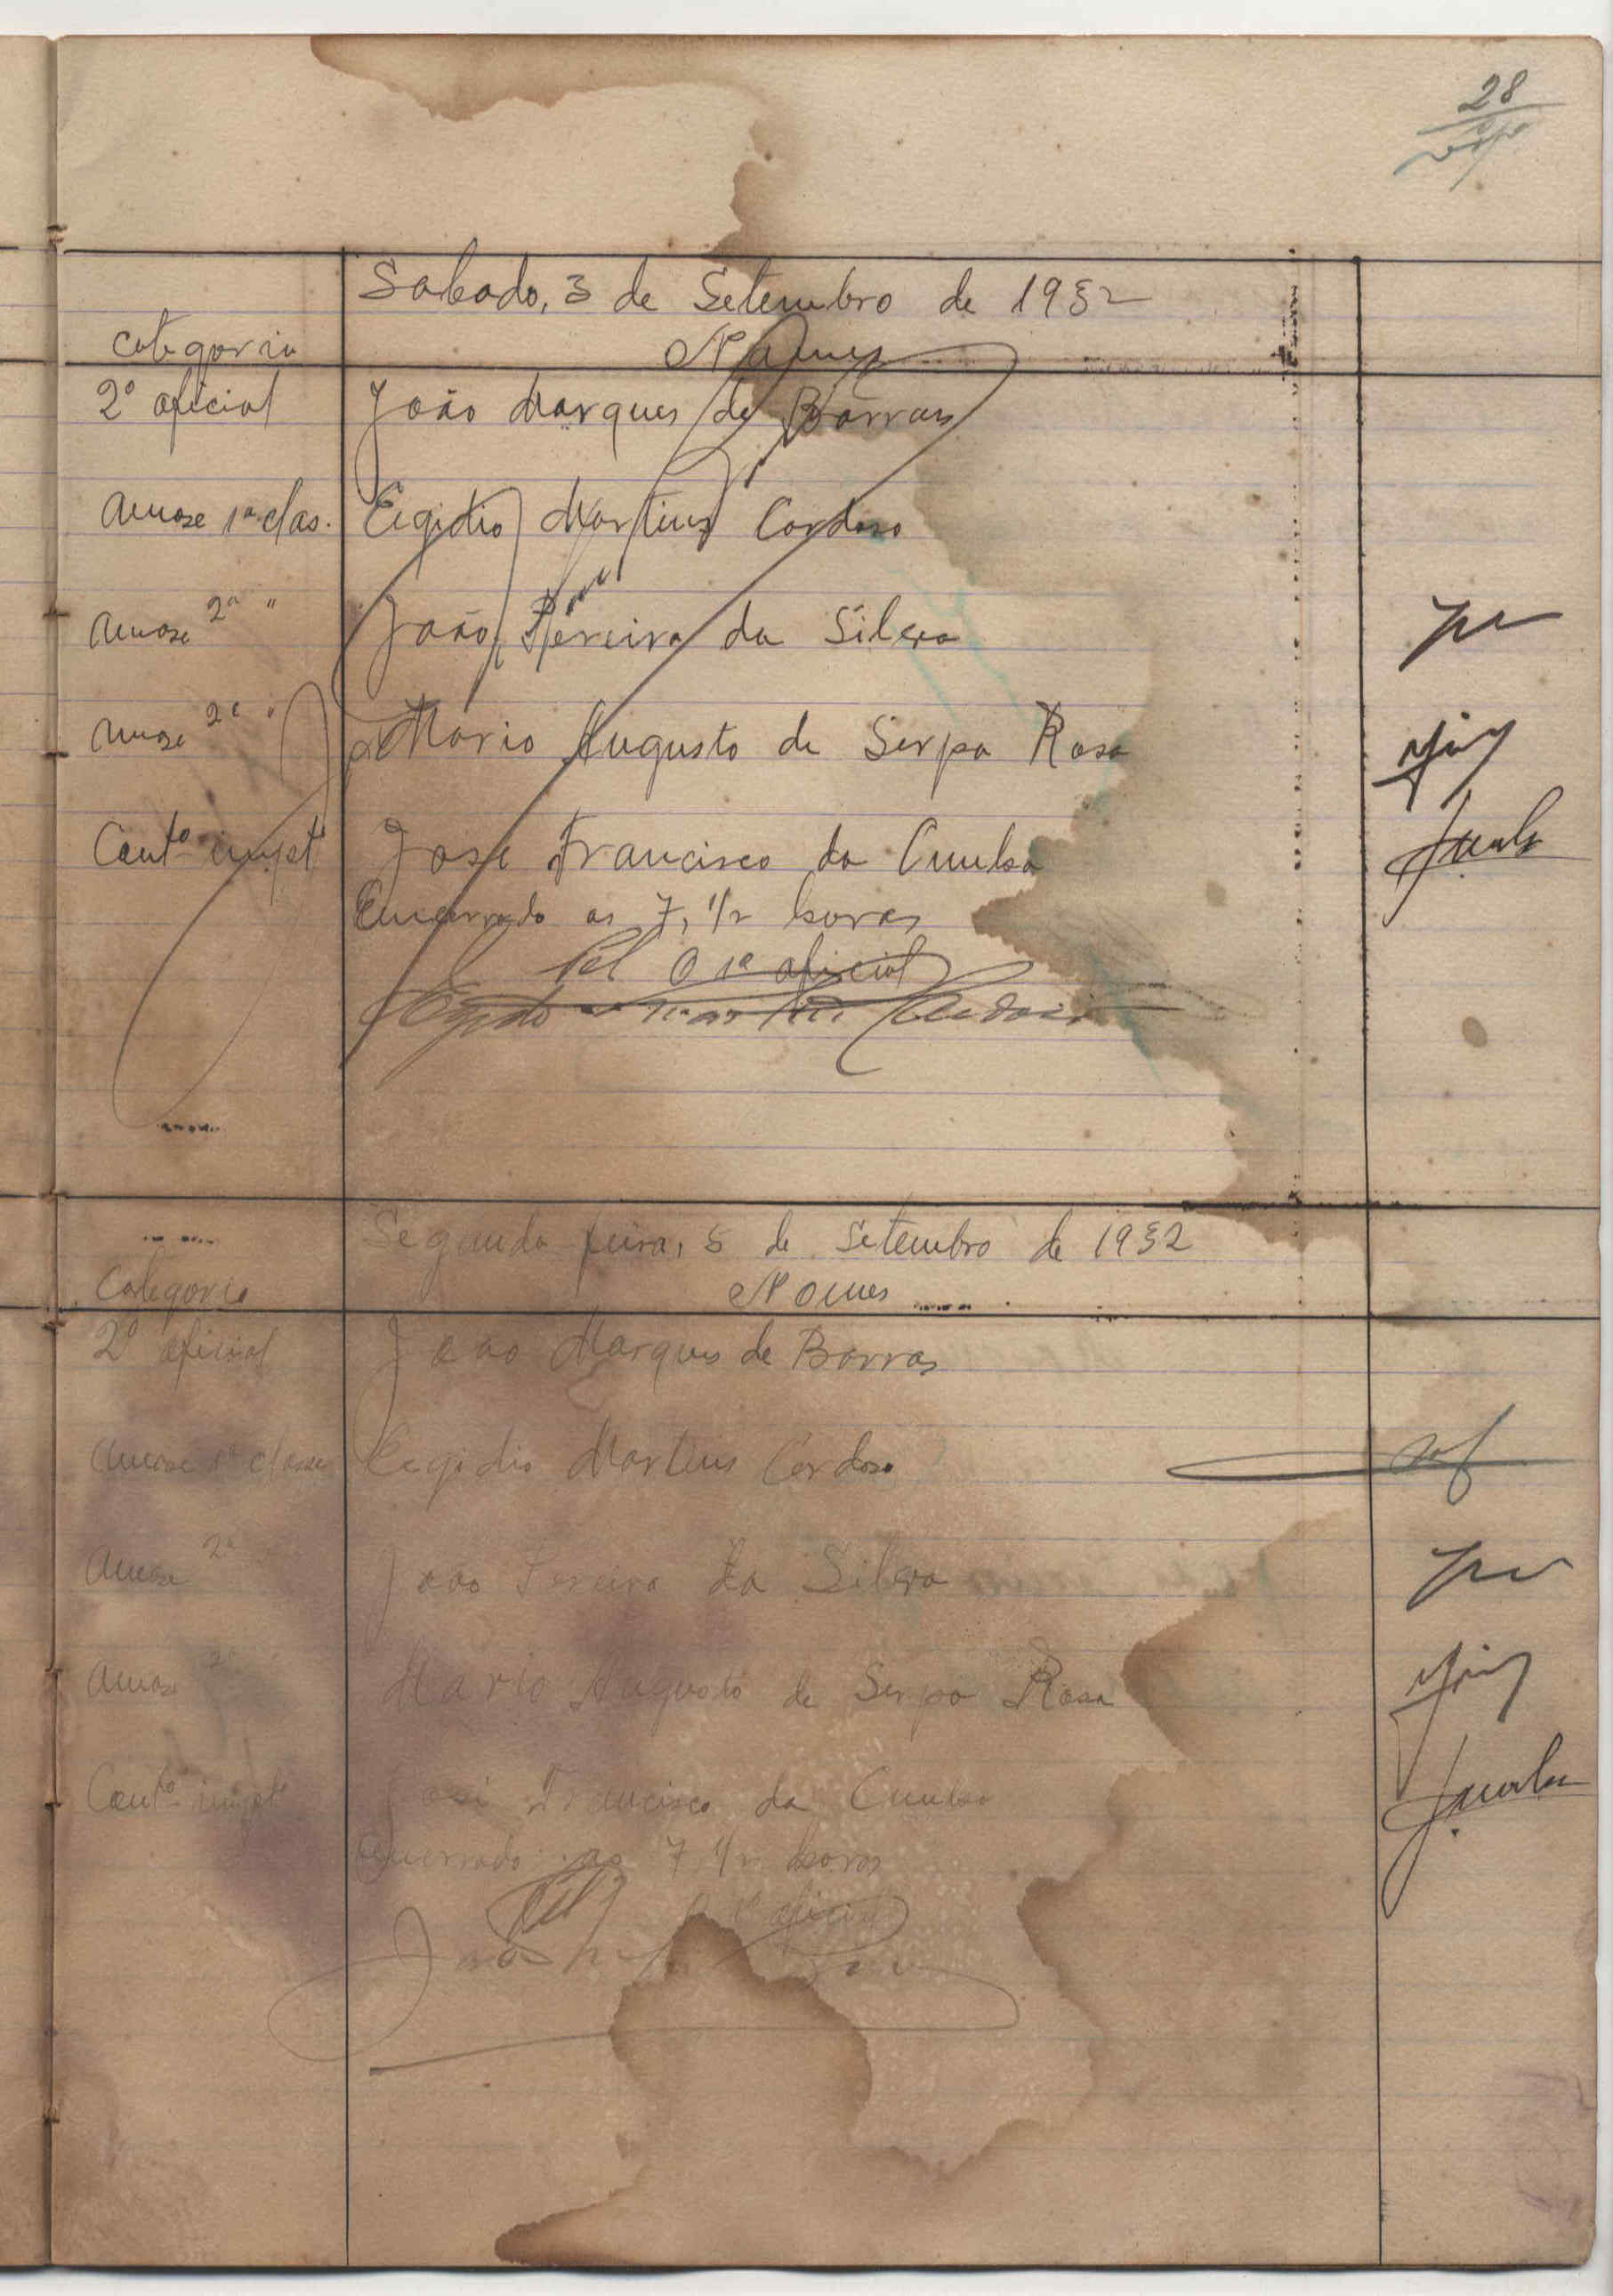 28
Sabado, 3 de Setembro de 1932
Categoria Nomes
2º oficial João Marques de Barras
Amose 1ª clas. Eegidio Martins Cardoso
Amose 2ª " João Pereira da Silva
Amose 2ª " Mario Augusto de Serpa Rosa
Contº impet José Francisco da Cunha
Encerrado as 7, 1/2 horas
Pel O 1º oficial
Egidio Martins Cardoso
Segunda feira, 5 de Setembro de 1932
Categoria Nomes
2º oficial João Marques de Barras
Amose 1ª classe Eegidio Martins Cardoso
Amose 2ª João Pereira da Silva
Amose 2ª Mario Augusto de Serpa Rosa
Contº impet José Francisco da Cunha
Encerrado as 7 1/2 horas
Pel O 1º oficial